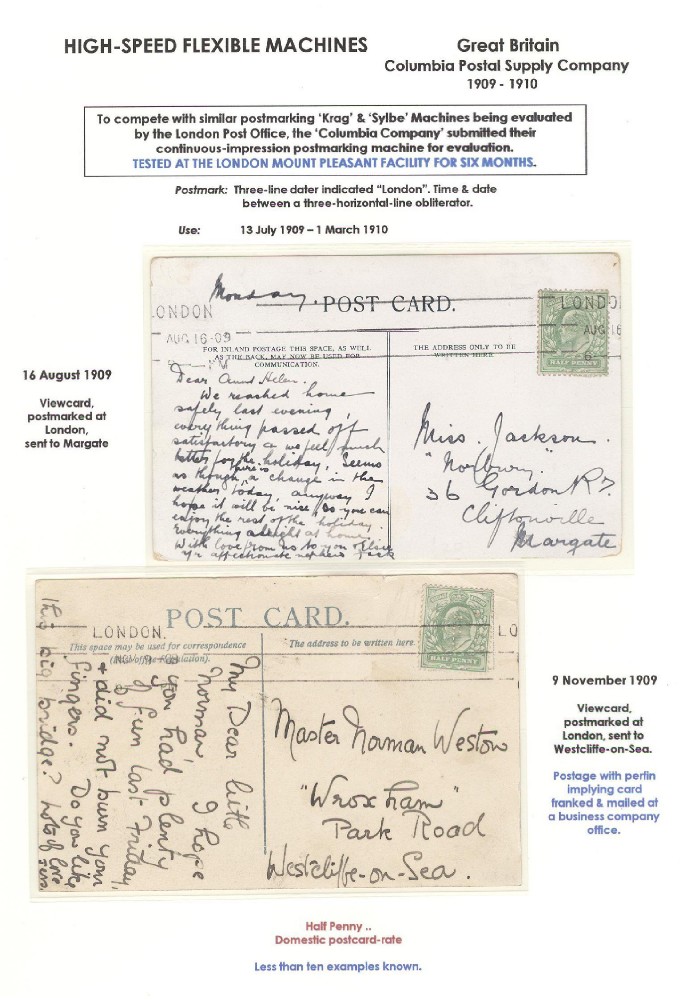 HIGH-SPEED FLEXIBLE MACHINES
Great Britain
Columbia Postal Supply Company
1909 - 1910
To compete with similar postmarking 'Krag' & 'Sylbe' Machines being evaluated
by the London Post Office, the 'Columbia Company' submitted their
continuous-impression postmarking machine for evaluation.
TESTED AT THE LONDON MOUNT PLEASANT FACILITY FOR SIX MONTHS.
Postmark: Three-line dater indicated "London". Time & date
between a three-horizontal-line obliterator.
Use: 13 July 1909 – 1 March 1910
16 August 1909
Viewcard,
postmarked at
London,
sent to Margate
Monday.
POST CARD.
LONDON
AUG 16-09
PM
LONDO
AUG 16
6
HALF PENNY
FOR INLAND POSTAGE THIS SPACE, AS WELL
AS THE BACK, MAY NOW BE USED FOR
COMMUNICATION.
THE ADDRESS ONLY TO BE
WRITTEN HERE.
Dear Aunt Helen.
We reached home
safely last evening,
everything passed off
satisfactory & we feel much
better for the holiday, Seems
as though there is a change in the
weather today. anyway I
hope it will be nice so you can
enjoy the rest of the holiday.
Everything alright at home
With love from us to you & Elsie
yr affectionate nephew Jack
Miss. Jackson.
"Norbury"
36 Gordon Rd.
Cliftonville
Margate
POST CARD.
LONDON.
NOV 9
LO
HALF PENNY
This space may be used for correspondence
The address to be written here.
My Dear little
Norman I hope
you had plenty
of fun last Friday,
& did not burn your
fingers. Do you like
this big bridge? Lots of love
Master Norman Weston
"Wroxham"
Park Road
Westcliffe-on-Sea.
9 November 1909
Viewcard,
postmarked at
London, sent to
Westcliffe-on-Sea.
Postage with perfin
implying card
franked & mailed at
a business company
office.
Half Penny ..
Domestic postcard-rate
Less than ten examples known.